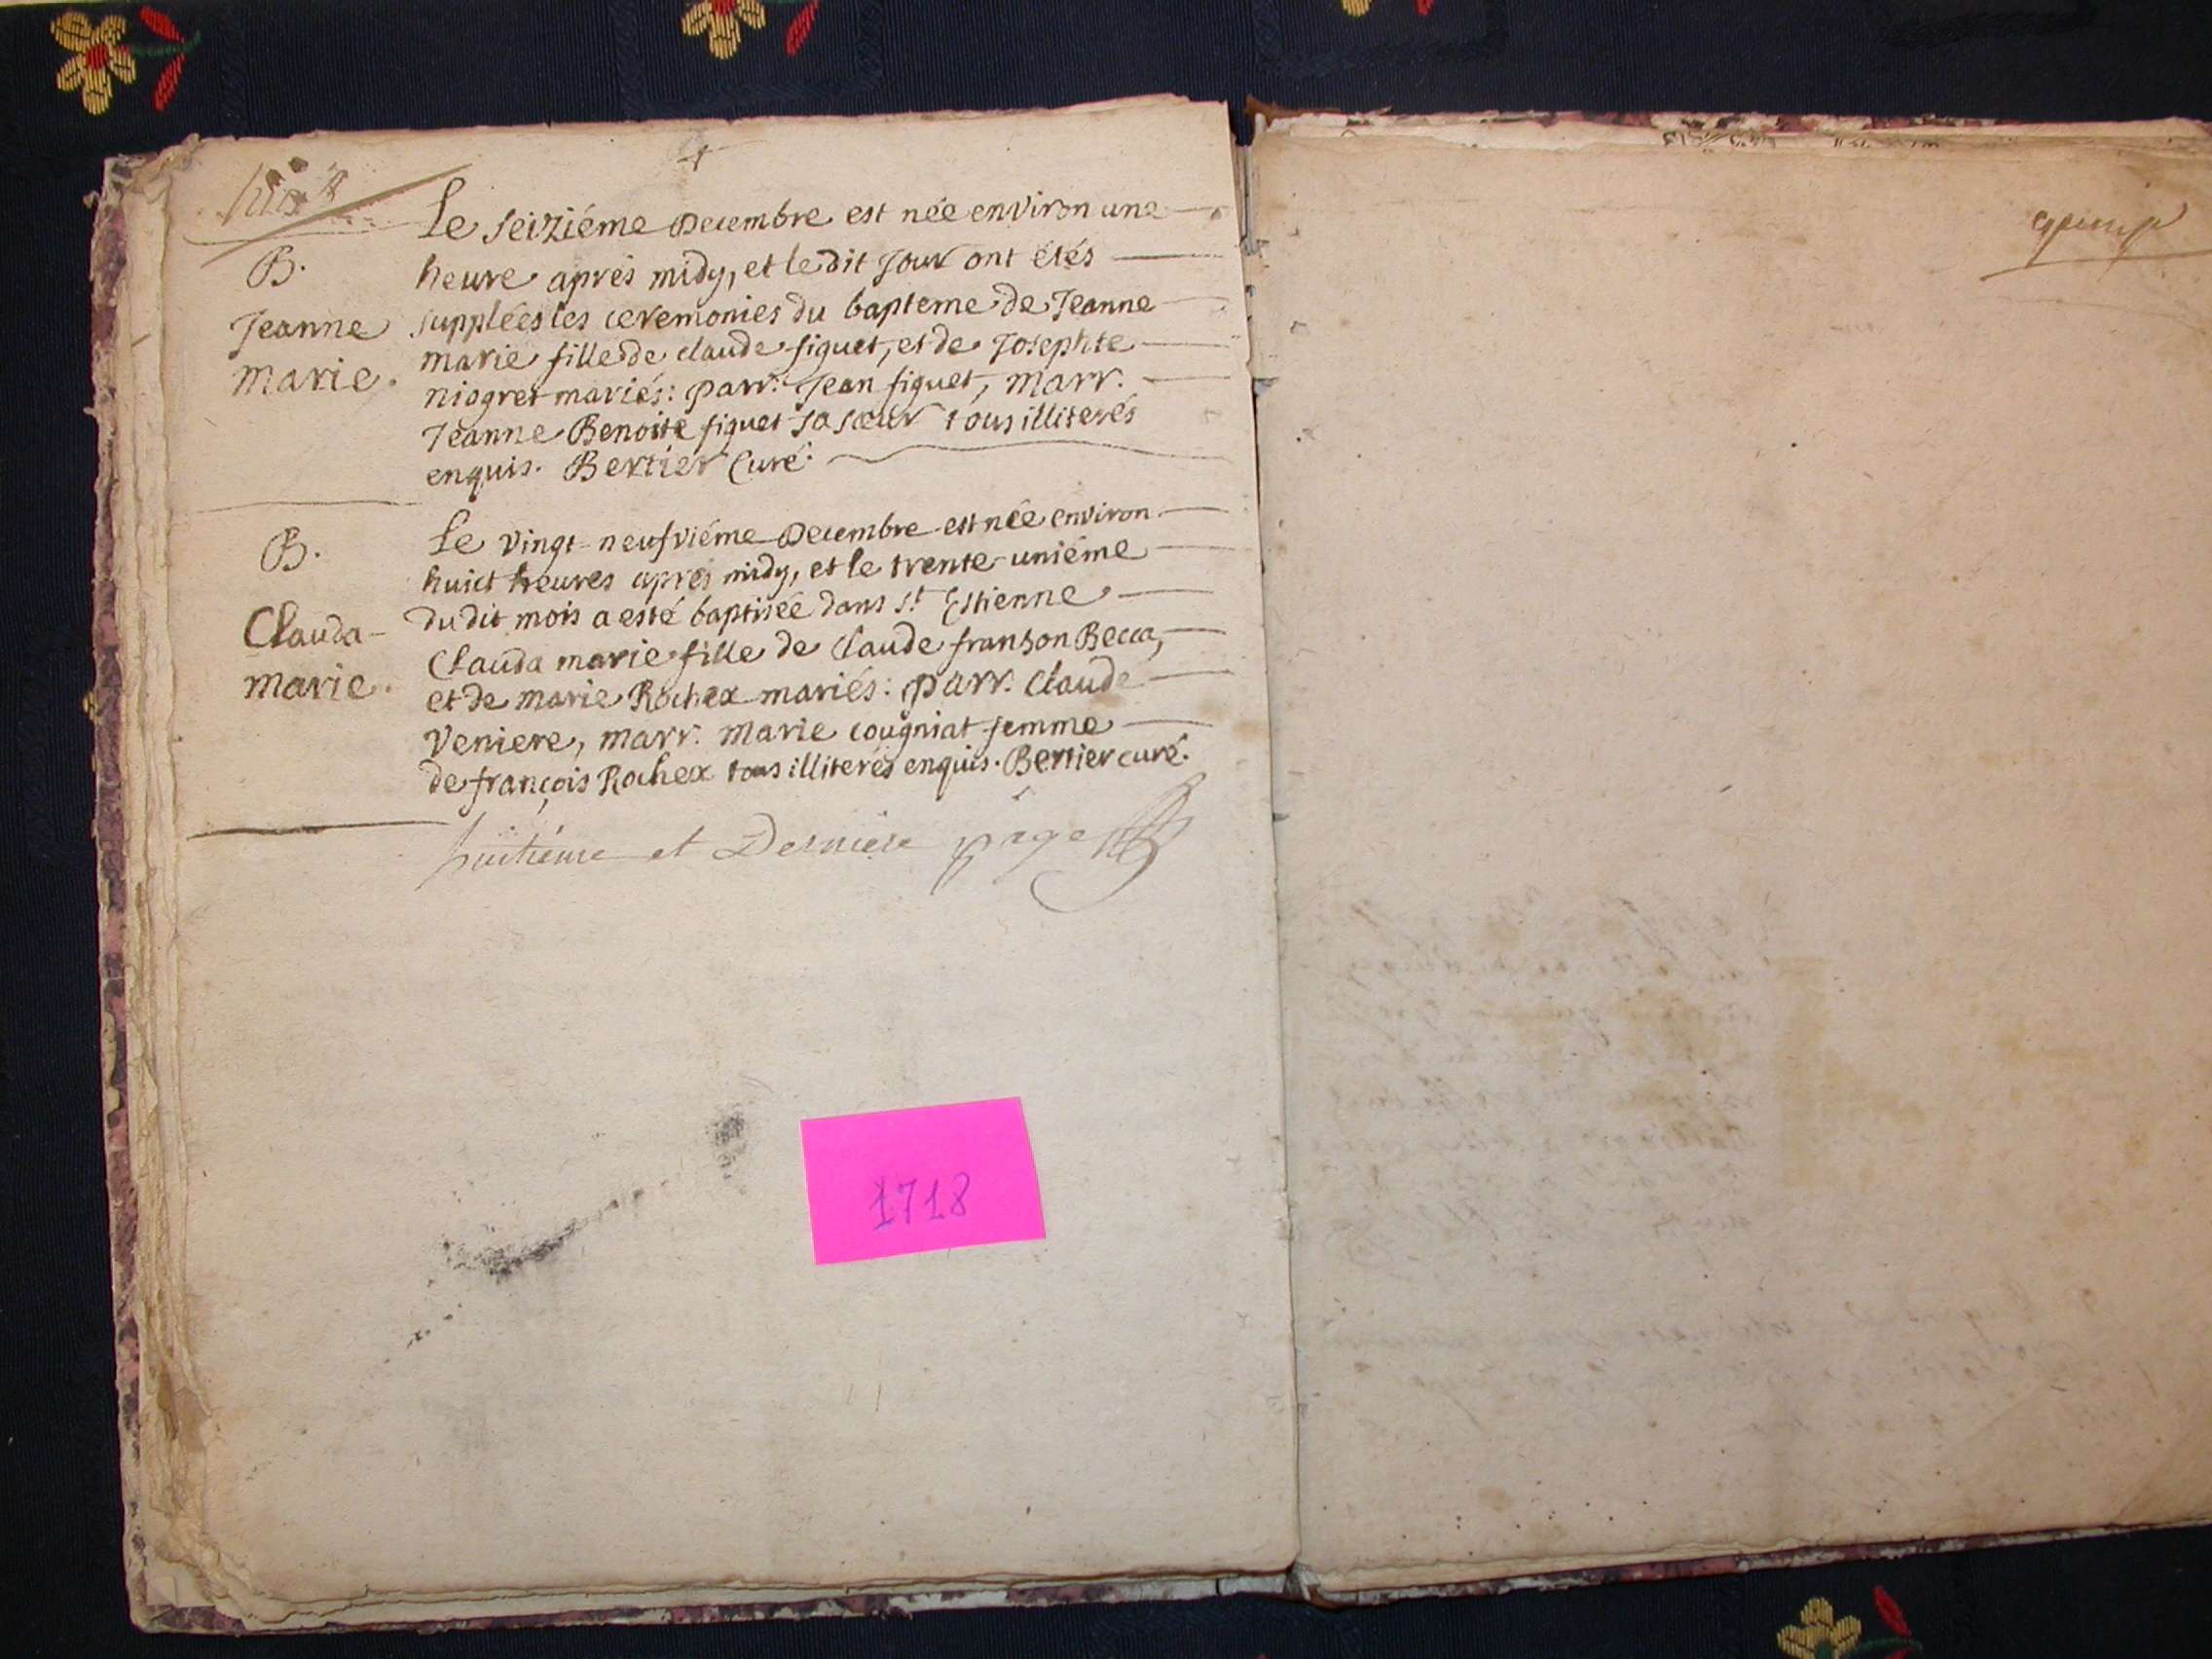 huit
Le seiziéme Decembre est née environ une
B.
heure aprés midy, et le dit Jour ont étés
Jeanne
supplées les ceremonies du bapteme de Jeanne
marie.
marie fille de claude figuet, et de Josephte
niogret mariés: parr. Jean figuet, marr.
Jeanne Benoite figuet sa sœur tous illiterés
enquis. Bertier Curé.
B.
Le vingt-neufviéme Decembre est née environ
huict heures aprés midy, et le trente-uniéme
Clauda
du dit mois a esté baptisée dans st Estienne
marie.
Clauda marie fille de Claude franson Becca,
et de marie Rochex mariés: parr. Claude
Veniere, marr. marie cougniat femme
de françois Rochex tous illiterés enquis. Bertier curé.
huitiéme et Derniére page
1718